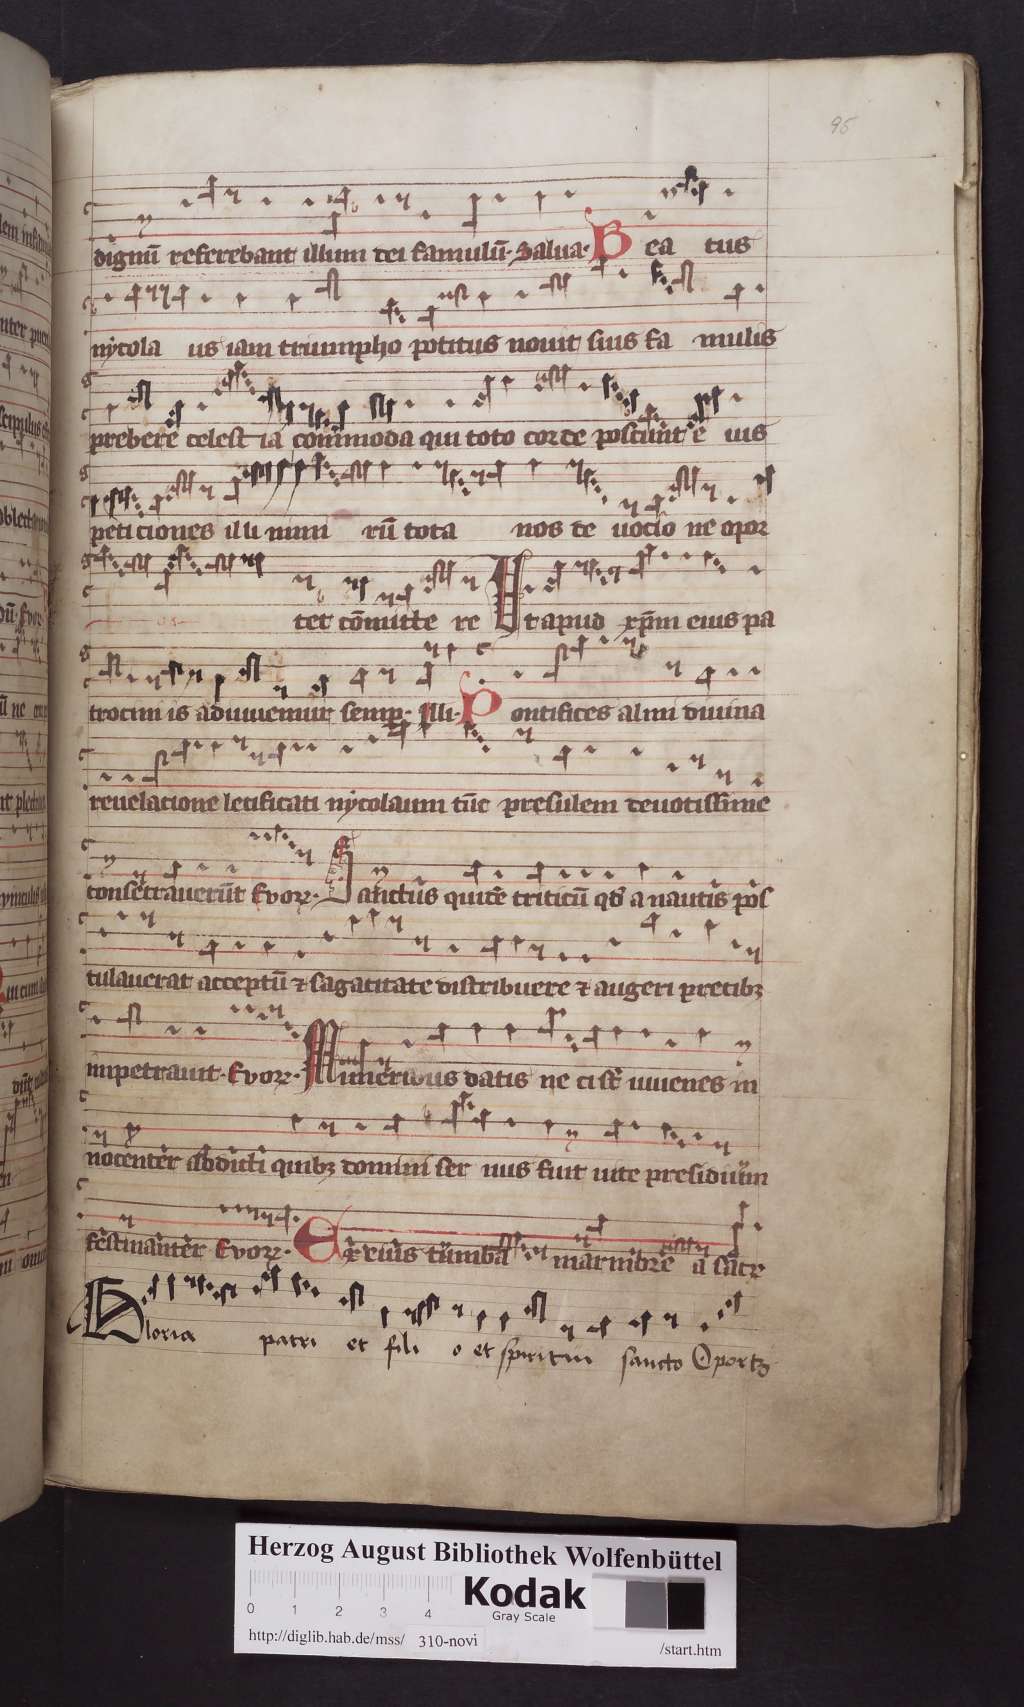 95
dignū referebant illum dei famulū· Salua· Bea tus
nycola us iam triumpho potitus nouit suis fa mulis
prebere celest ia commoda qui toto corde poscunt e ius
peti ciones illi nimi rū tota nos de uocio ne opor
tet cōmitte re Ut apud xp̄m eius pa
trocin iis adiuuemur semp· Illi· Pontifices almi diuina
reuelacione letificati nycolaum tūc presulem deuotissime
consecrauerūt Euor· Sanctus quidē triticū qd a nautis pos
tulauerat acceptū ⁊ sagacitate distribuere ⁊ augeri precibꝫ
impetrauit· Euor· Muneribus datis ne cist iuuenes in
nocenter abdicti quibꝫ domini ser uus fuit uite presidium
festinanter Euor· Ex eius tumba marmorea sacr
Gloria patri et fili o et spiritui sancto Oportꝫ
Herzog August Bibliothek Wolfenbüttel
0 1 2 3 4
Kodak
Gray Scale
http://diglib.hab.de/mss/ 310-novi /start.htm